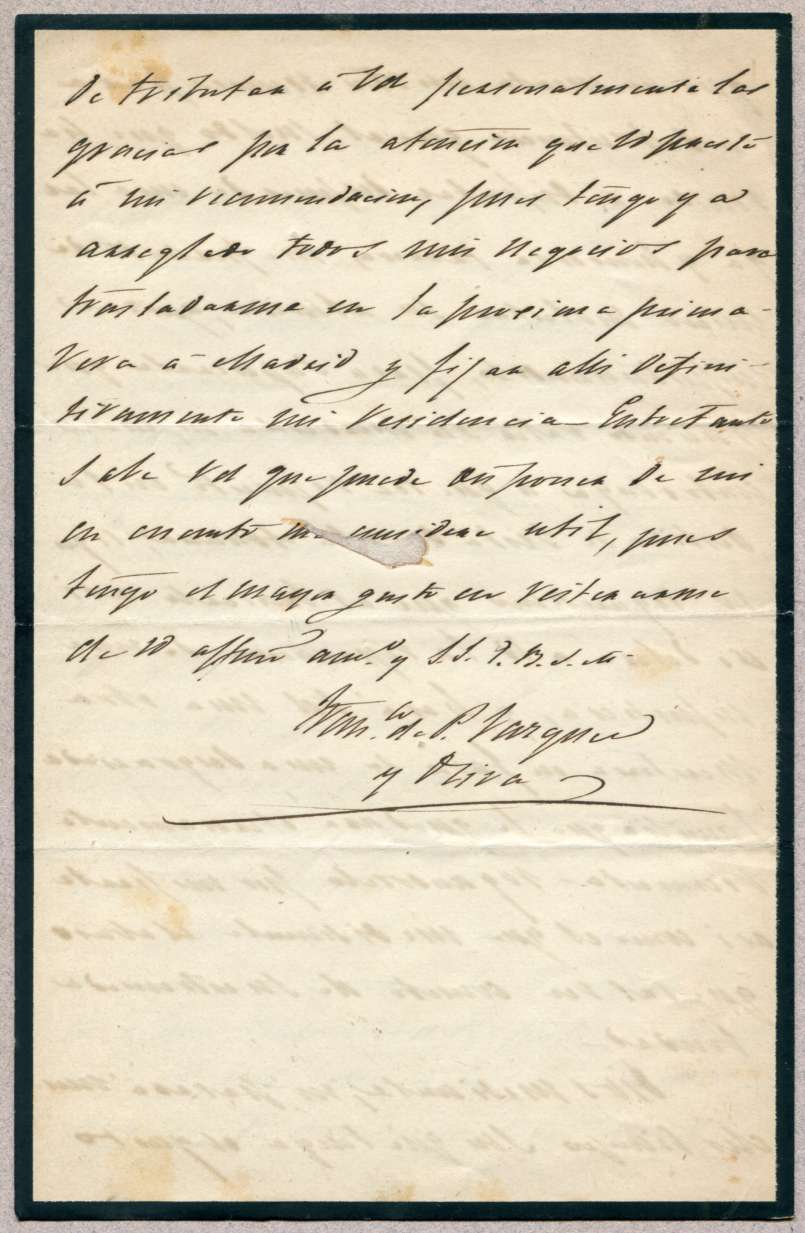 de tributar á Vd personalmente las
gracias por la atencion que Vd preste
á mi recomendacion, pues tengo ya
arreglado todos mis negocios para
trasladarme en la proxima prima-
vera á Madrid y fijar alli defini-
tivamente mi residencia. Entretanto
sabe Vd que puede disponer de mi
en cuanto me considere util, pues
tengo el mayor gusto en reiterarme
de Vd affmo amo. y S.S. Q. B. S. M.
Franco. de P. Vazquez
y Oliva